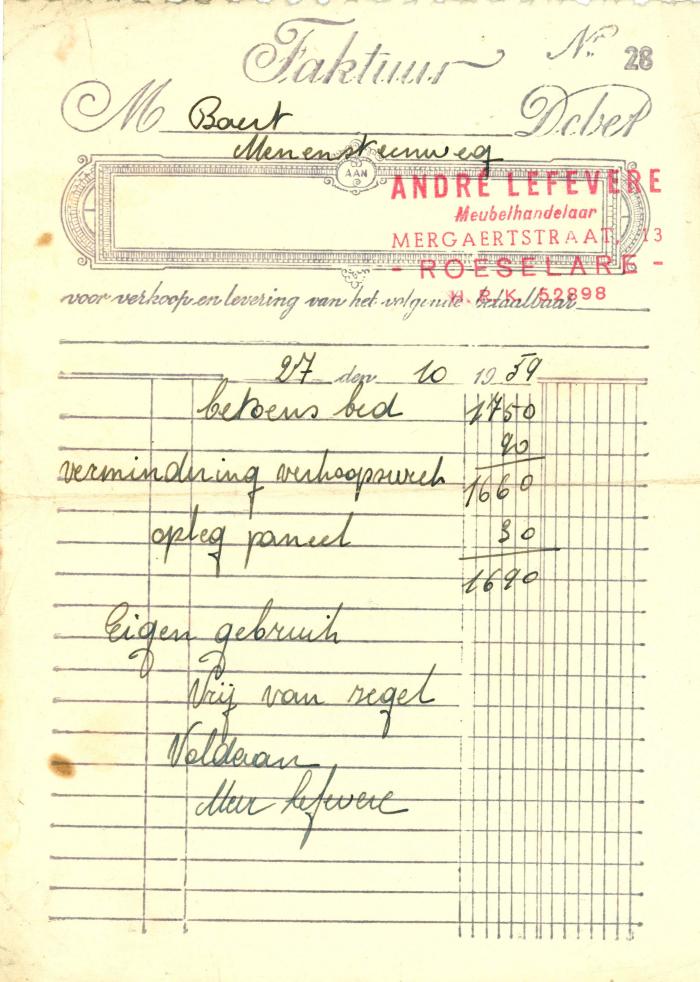 Faktuur Nr. 28
M Baert Debet
Menensteenweg
AAN
ANDRÉ LEFEVERE
Meubelhandelaar
MERGAERTSTRAAT, 13
- ROESELARE -
H. R. K. 52898
voor verkoop en levering van het volgende betaalbaar
27 den 10 19 59
bed 1750
90
vermindering 1660
opleg paneel 30
1690
Eigen gebruik
Vrij van zegel
Voldaan
Lefevere